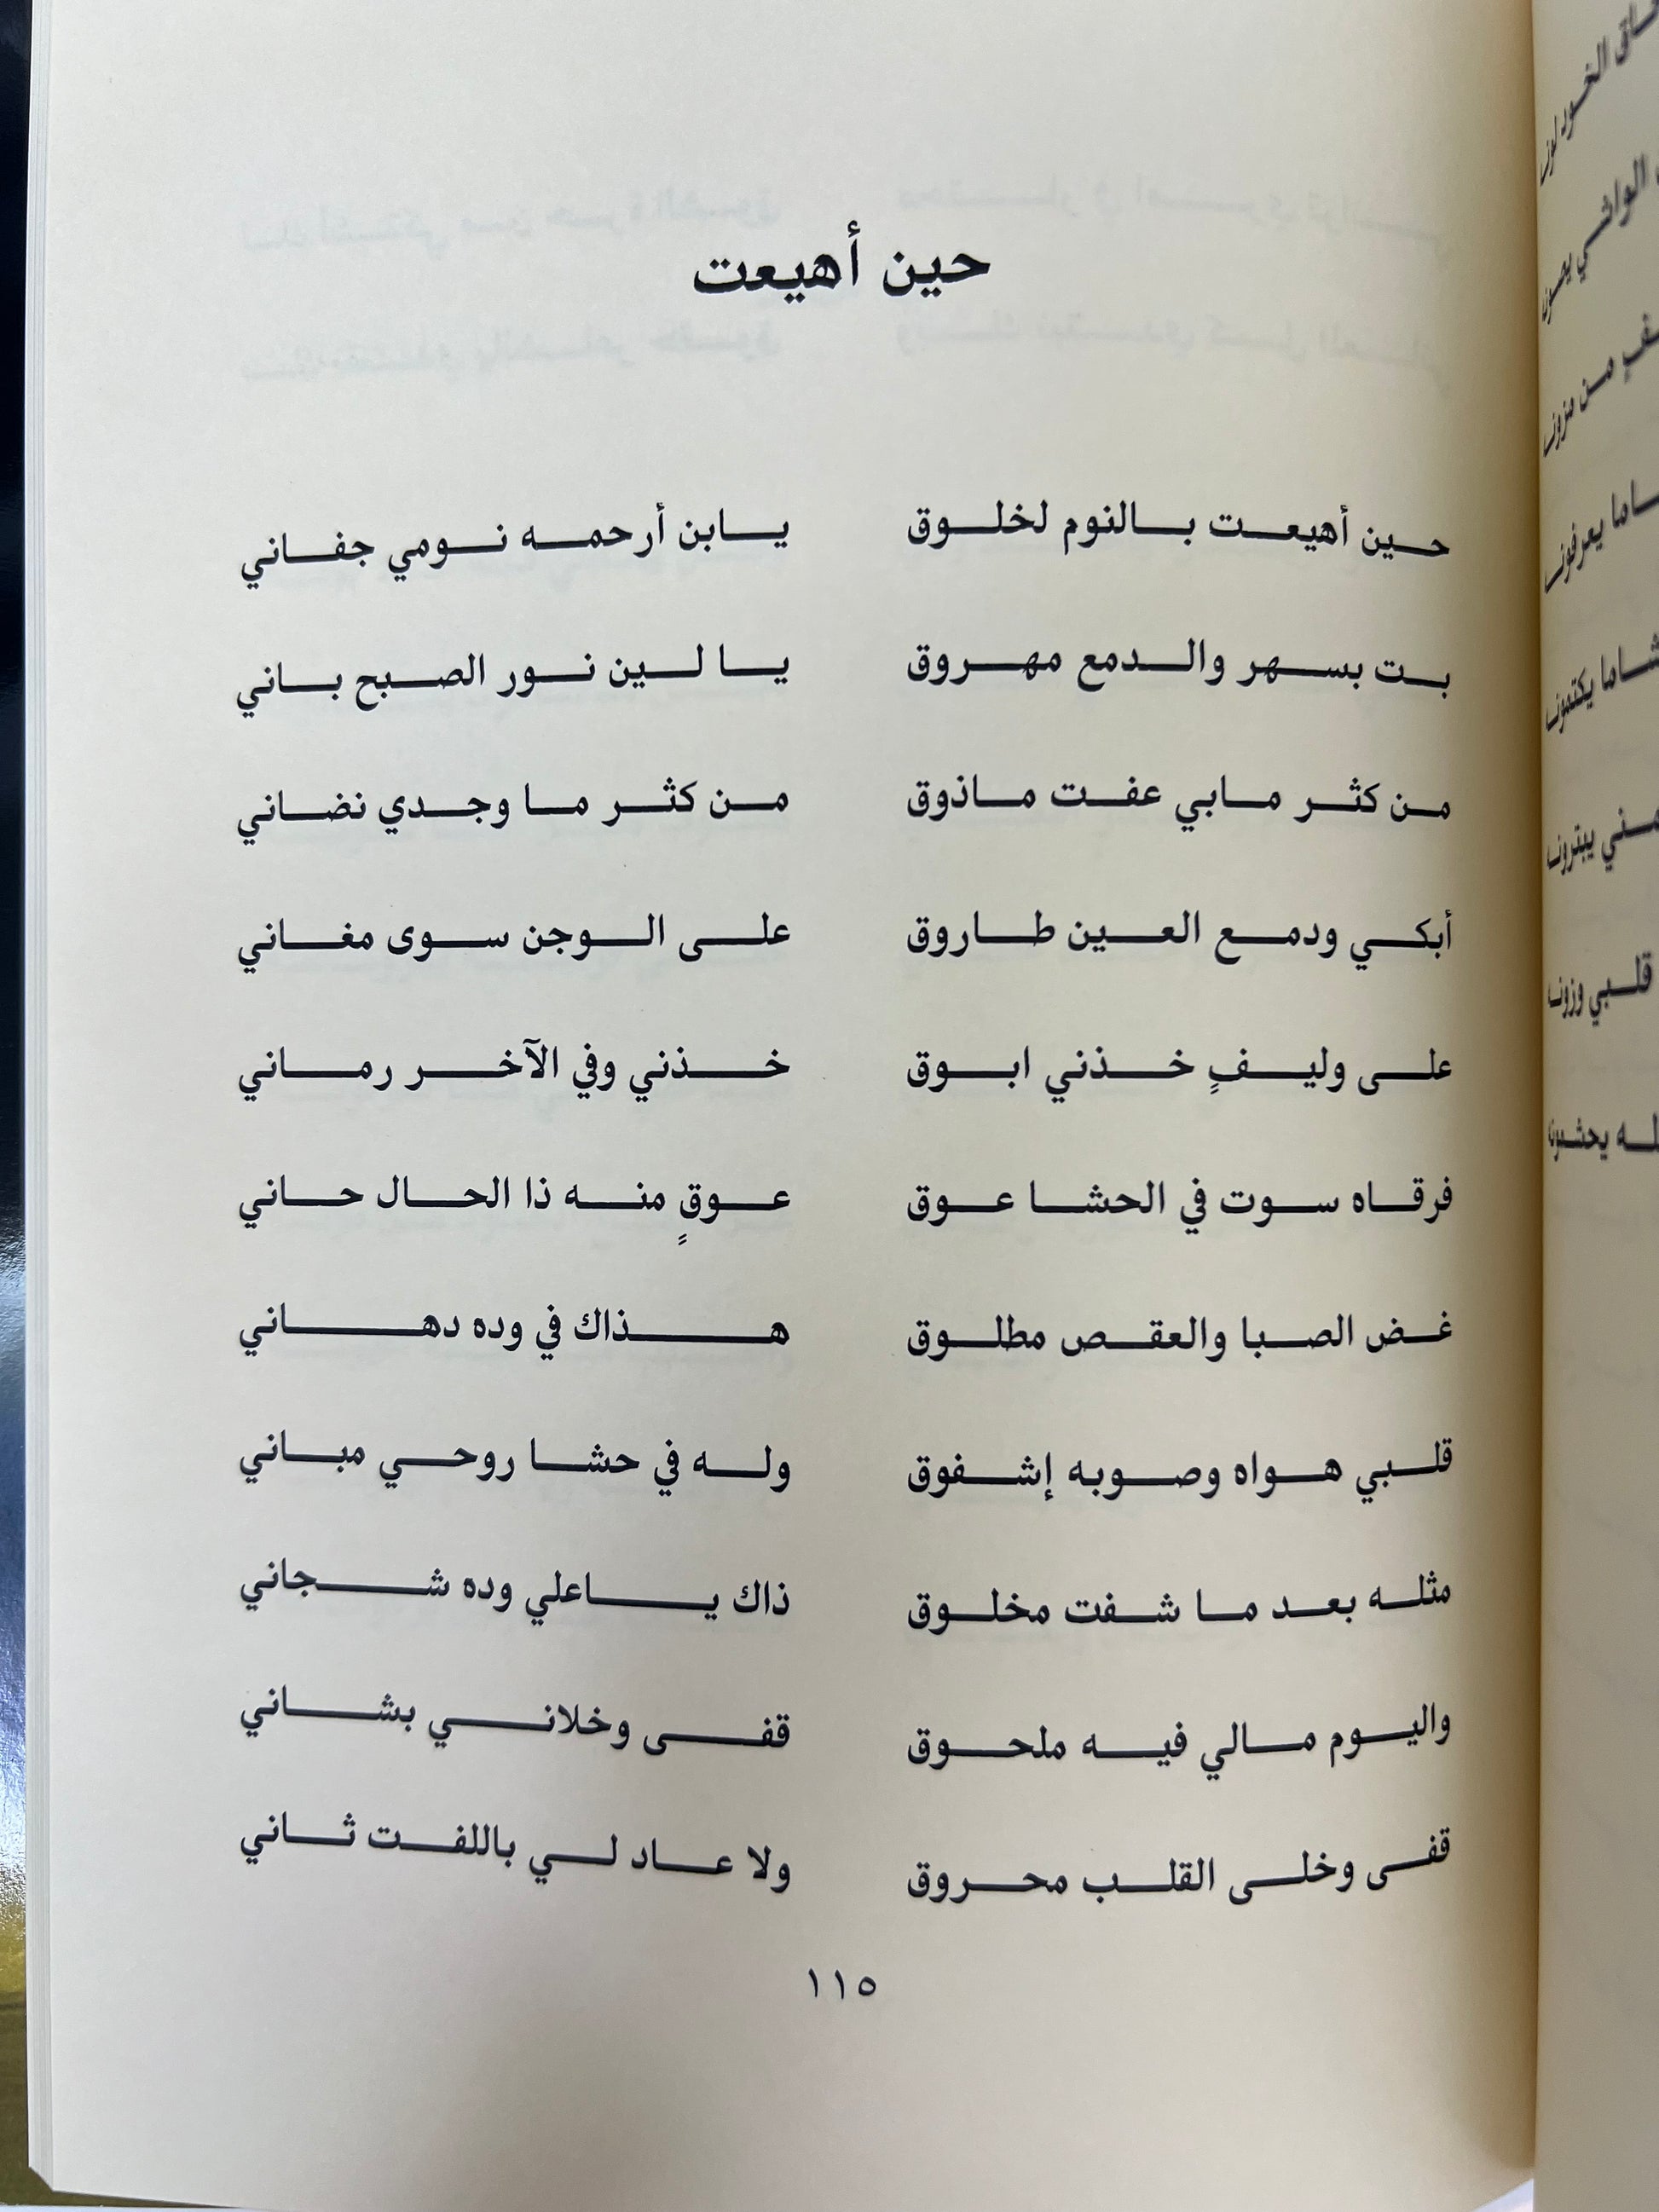 حين أهيعت
حين أهيعت بالنوم لخلوق يابن أرحمه نومي جفاني
بت بسهر والدمع مهروق يا لين نور الصبح باني
من كثر مابي عفت ماذوق من كثر ما وجدي نضاني
أبكي ودمع العين طاروق على الوجن سوى مغاني
على وليفٍ خذني ابوق خذني وفي الآخر رماني
فرقاه سوت في الحشا عوق عوقٍ منه ذا الحال حاني
غض الصبا والعقص مطلوق هذاك في وده دهاني
قلبي هواه وصوبه إشفوق وله في حشا روحي مباني
مثله بعد ما شفت مخلوق ذاك ياعلي وده شجاني
واليوم مالي فيه ملحوق قفى وخلاني بشاني
قفى وخلى القلب محروق ولا عاد لي باللفت ثاني
١١٥
من مزونه
يعرفونه
يكتمونه
يبترونه
قلبي وزونه